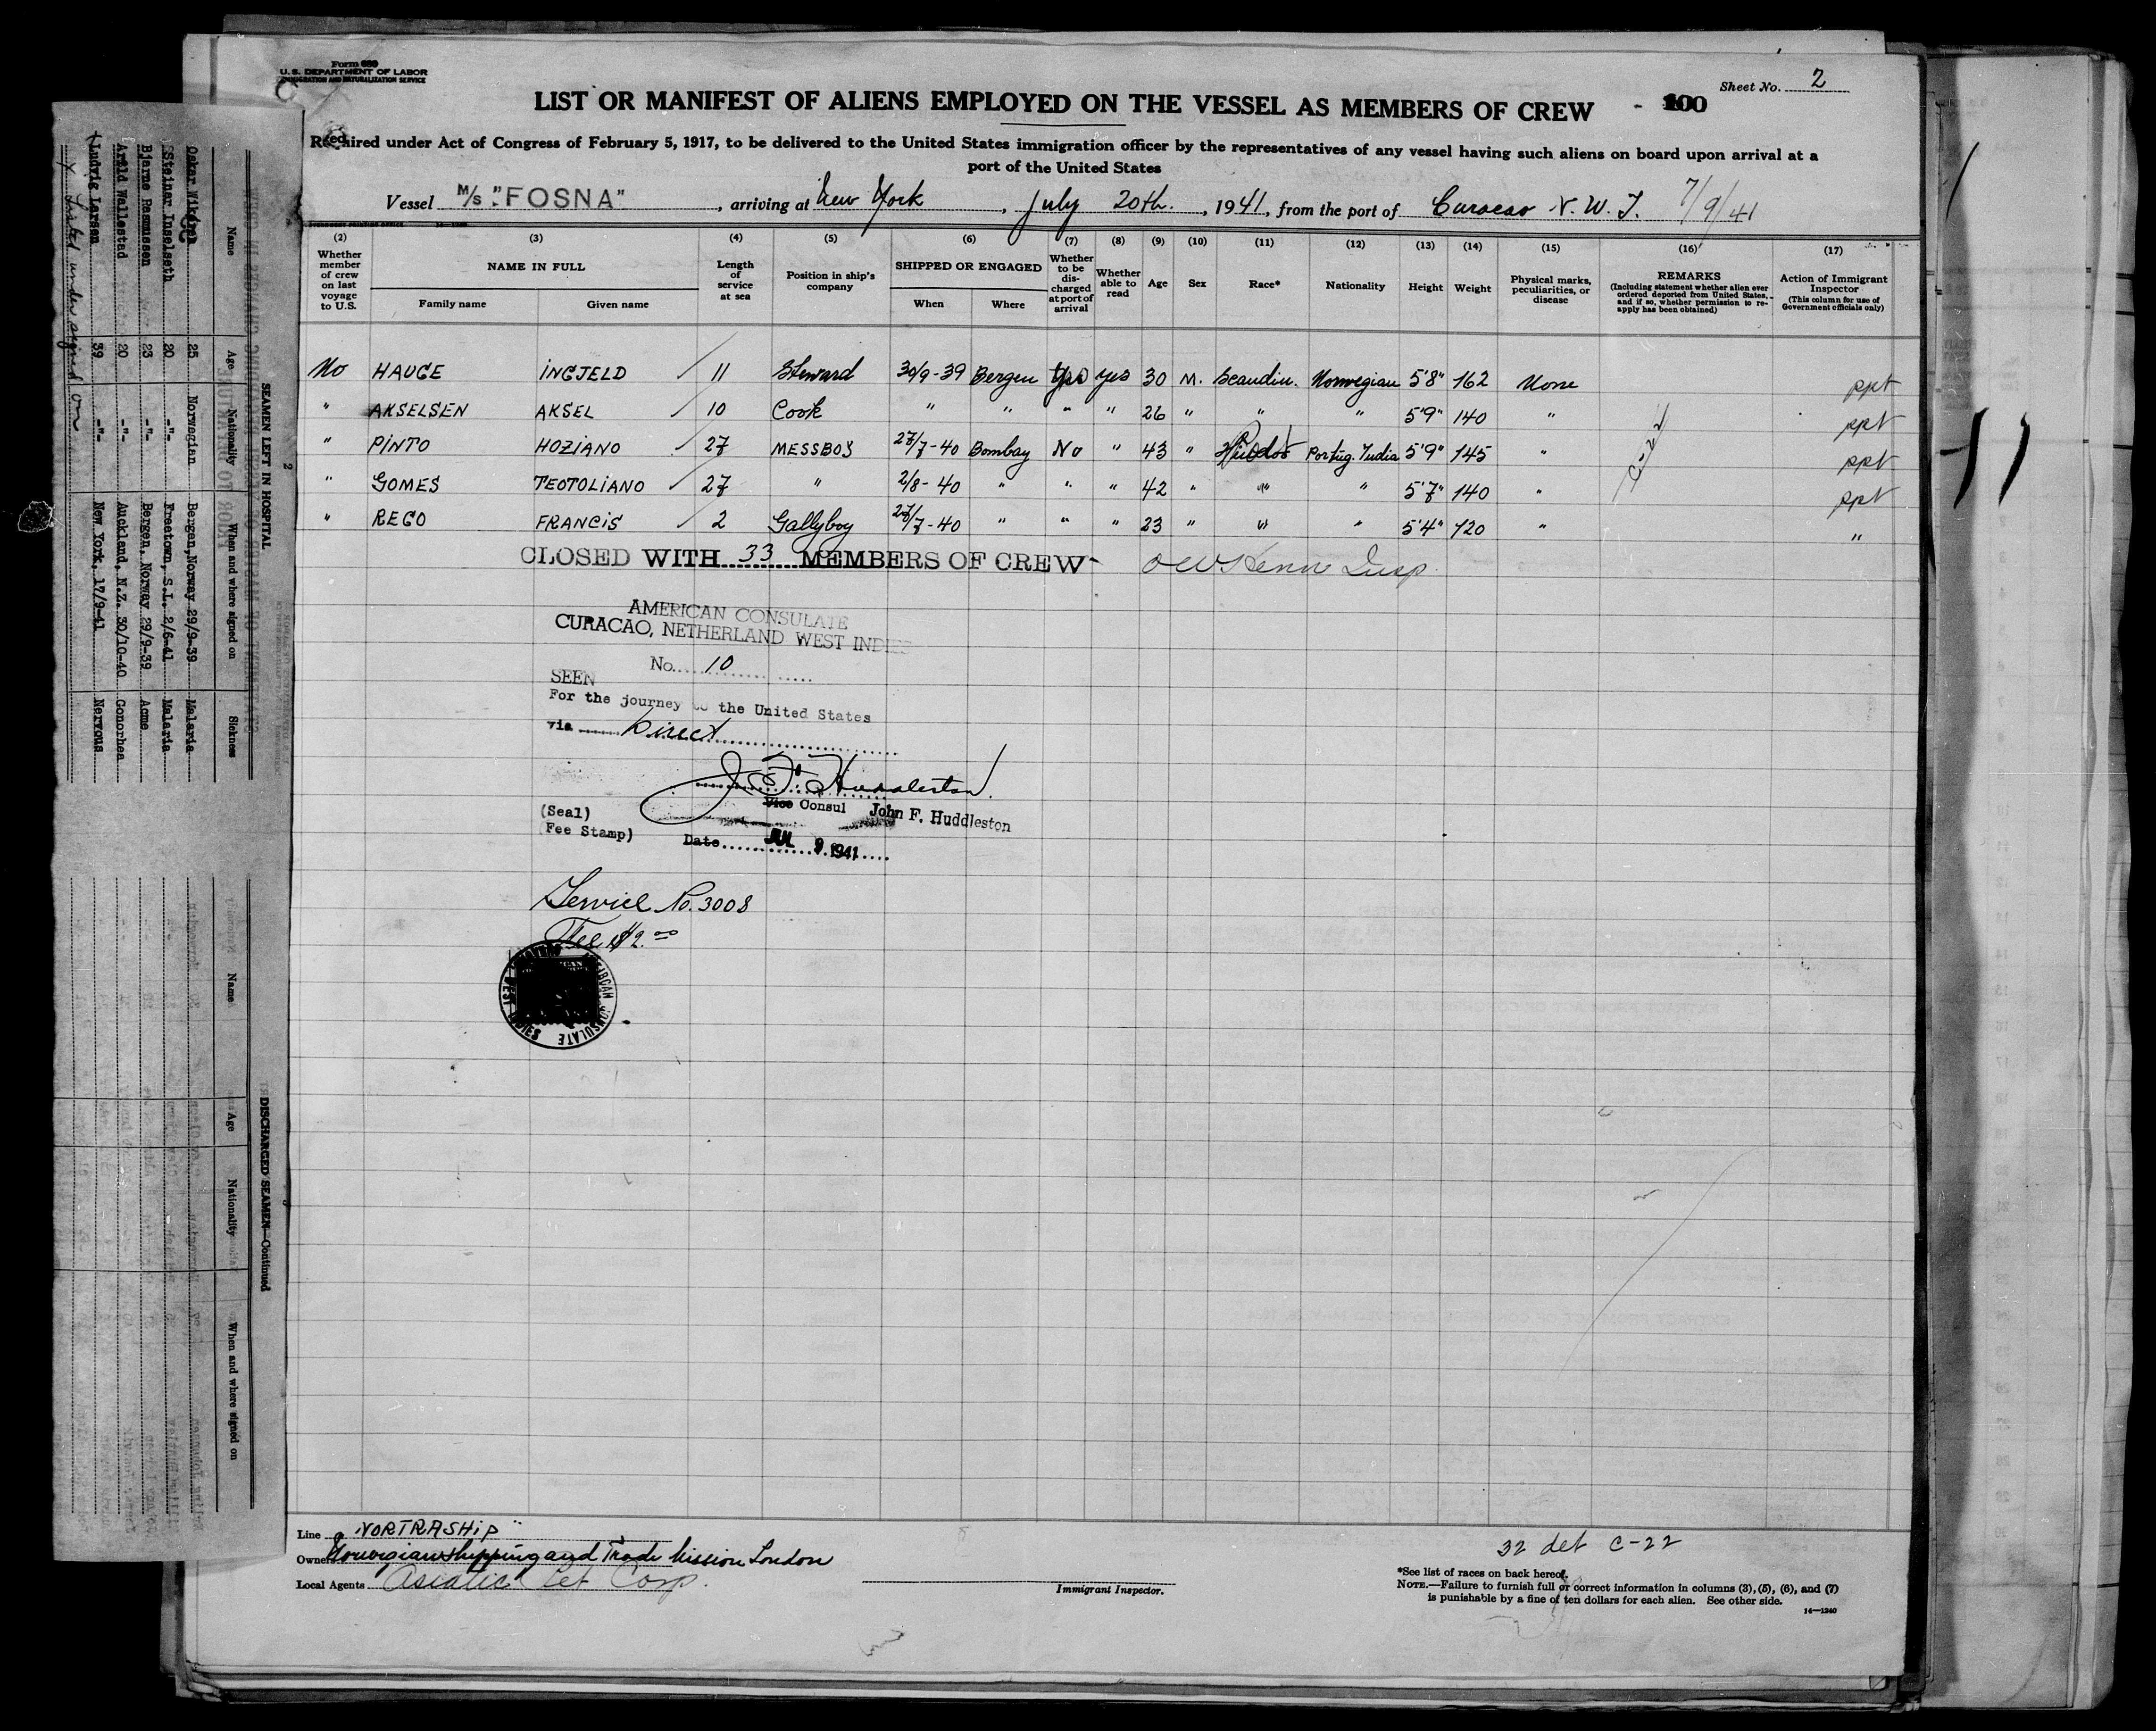 Form 689
U. S. DEPARTMENT OF LABOR
IMMIGRATION AND NATURALIZATION SERVICE
Sheet No. 2
LIST OR MANIFEST OF ALIENS EMPLOYED ON THE VESSEL AS MEMBERS OF CREW
Required under Act of Congress of February 5, 1917, to be delivered to the United States immigration officer by the representatives of any vessel having such aliens on board upon arrival at a
port of the United States
Vessel M/S "FOSNA", arriving at New York, July 20th, 1941, from the port of Curacao N. W. I. 7/9/41
(2) (3) (4) (5) (6) (7) (8) (9) (10) (11) (12) (13) (14) (15) (16) (17)
Whether member of crew on last voyage to U.S.
NAME IN FULL
Family name
Given name
Length of service at sea
Position in ship's company
SHIPPED OR ENGAGED
When
Where
Whether to be discharged at port of arrival
Whether able to read
Age
Sex
Race*
Nationality
Height
Weight
Physical marks, peculiarities, or disease
REMARKS
(Including statement whether alien ever ordered deported from United States, and if so, whether permission to reapply has been obtained)
Action of Immigrant Inspector
(This column for use of Government officials only)
No HAUGE INGJELD 11 Steward 30/9-39 Bergen Yes yes 30 M. Scandin. Norwegian 5'8" 162 None ppt
" AKSELSEN AKSEL 10 Cook " " " " 26 " " " 5'9" 140 " ppt
" PINTO HOZIANO 27 MESSBOY 27/7-40 Bombay No " 43 " Portug. India 5'9" 145 " ppt
" GOMES TEOTOLIANO 27 " 2/8-40 " " " 42 " " " 5'7" 140 " ppt
" REGO FRANCIS 2 Gallyboy 27/7-40 " " " 23 " " " 5'4" 120 " "
C-22
CLOSED WITH 33 MEMBERS OF CREW
AMERICAN CONSULATE
CURACAO, NETHERLAND WEST INDIES
No. 10
SEEN
For the journey to the United States
via Direct
J. F. Huddleston
Vice Consul John F. Huddleston
(Seal)
Fee Stamp)
Date JUL 9 1941
Service No. 3008
Fee $2.00
Line "NORTRASHIP"
Owners Norvegian Shipping and Trade Mission London
Local Agents Asiatic Pet Corp.
Immigrant Inspector.
32 det C-22
*See list of races on back hereof.
NOTE.—Failure to furnish full or correct information in columns (3), (5), (6), and (7)
is punishable by a fine of ten dollars for each alien. See other side.
14—1240
2
SEAMEN LEFT IN HOSPITAL
Name Age Nationality When and where signed on Sickness
Oskar 25 Norwegian Bergen, Norway 29/9-39 Malaria
Steinar Inselseth 20 -"- Freetown, S.L. 2/6-41 Malaria
Bjarne Rasmussen 23 -"- Bergen, Norway 29/9-39 Acme
Arild Wallestad 20 -"- Auckland, N.Z. 30/10-40 Gonorhea
Ludvig Larsen 39 -"- New York, 17/9-41 Nervous
x Listed under signed on
DISCHARGED SEAMEN—Continued
Name Age Nationality When and where signed on